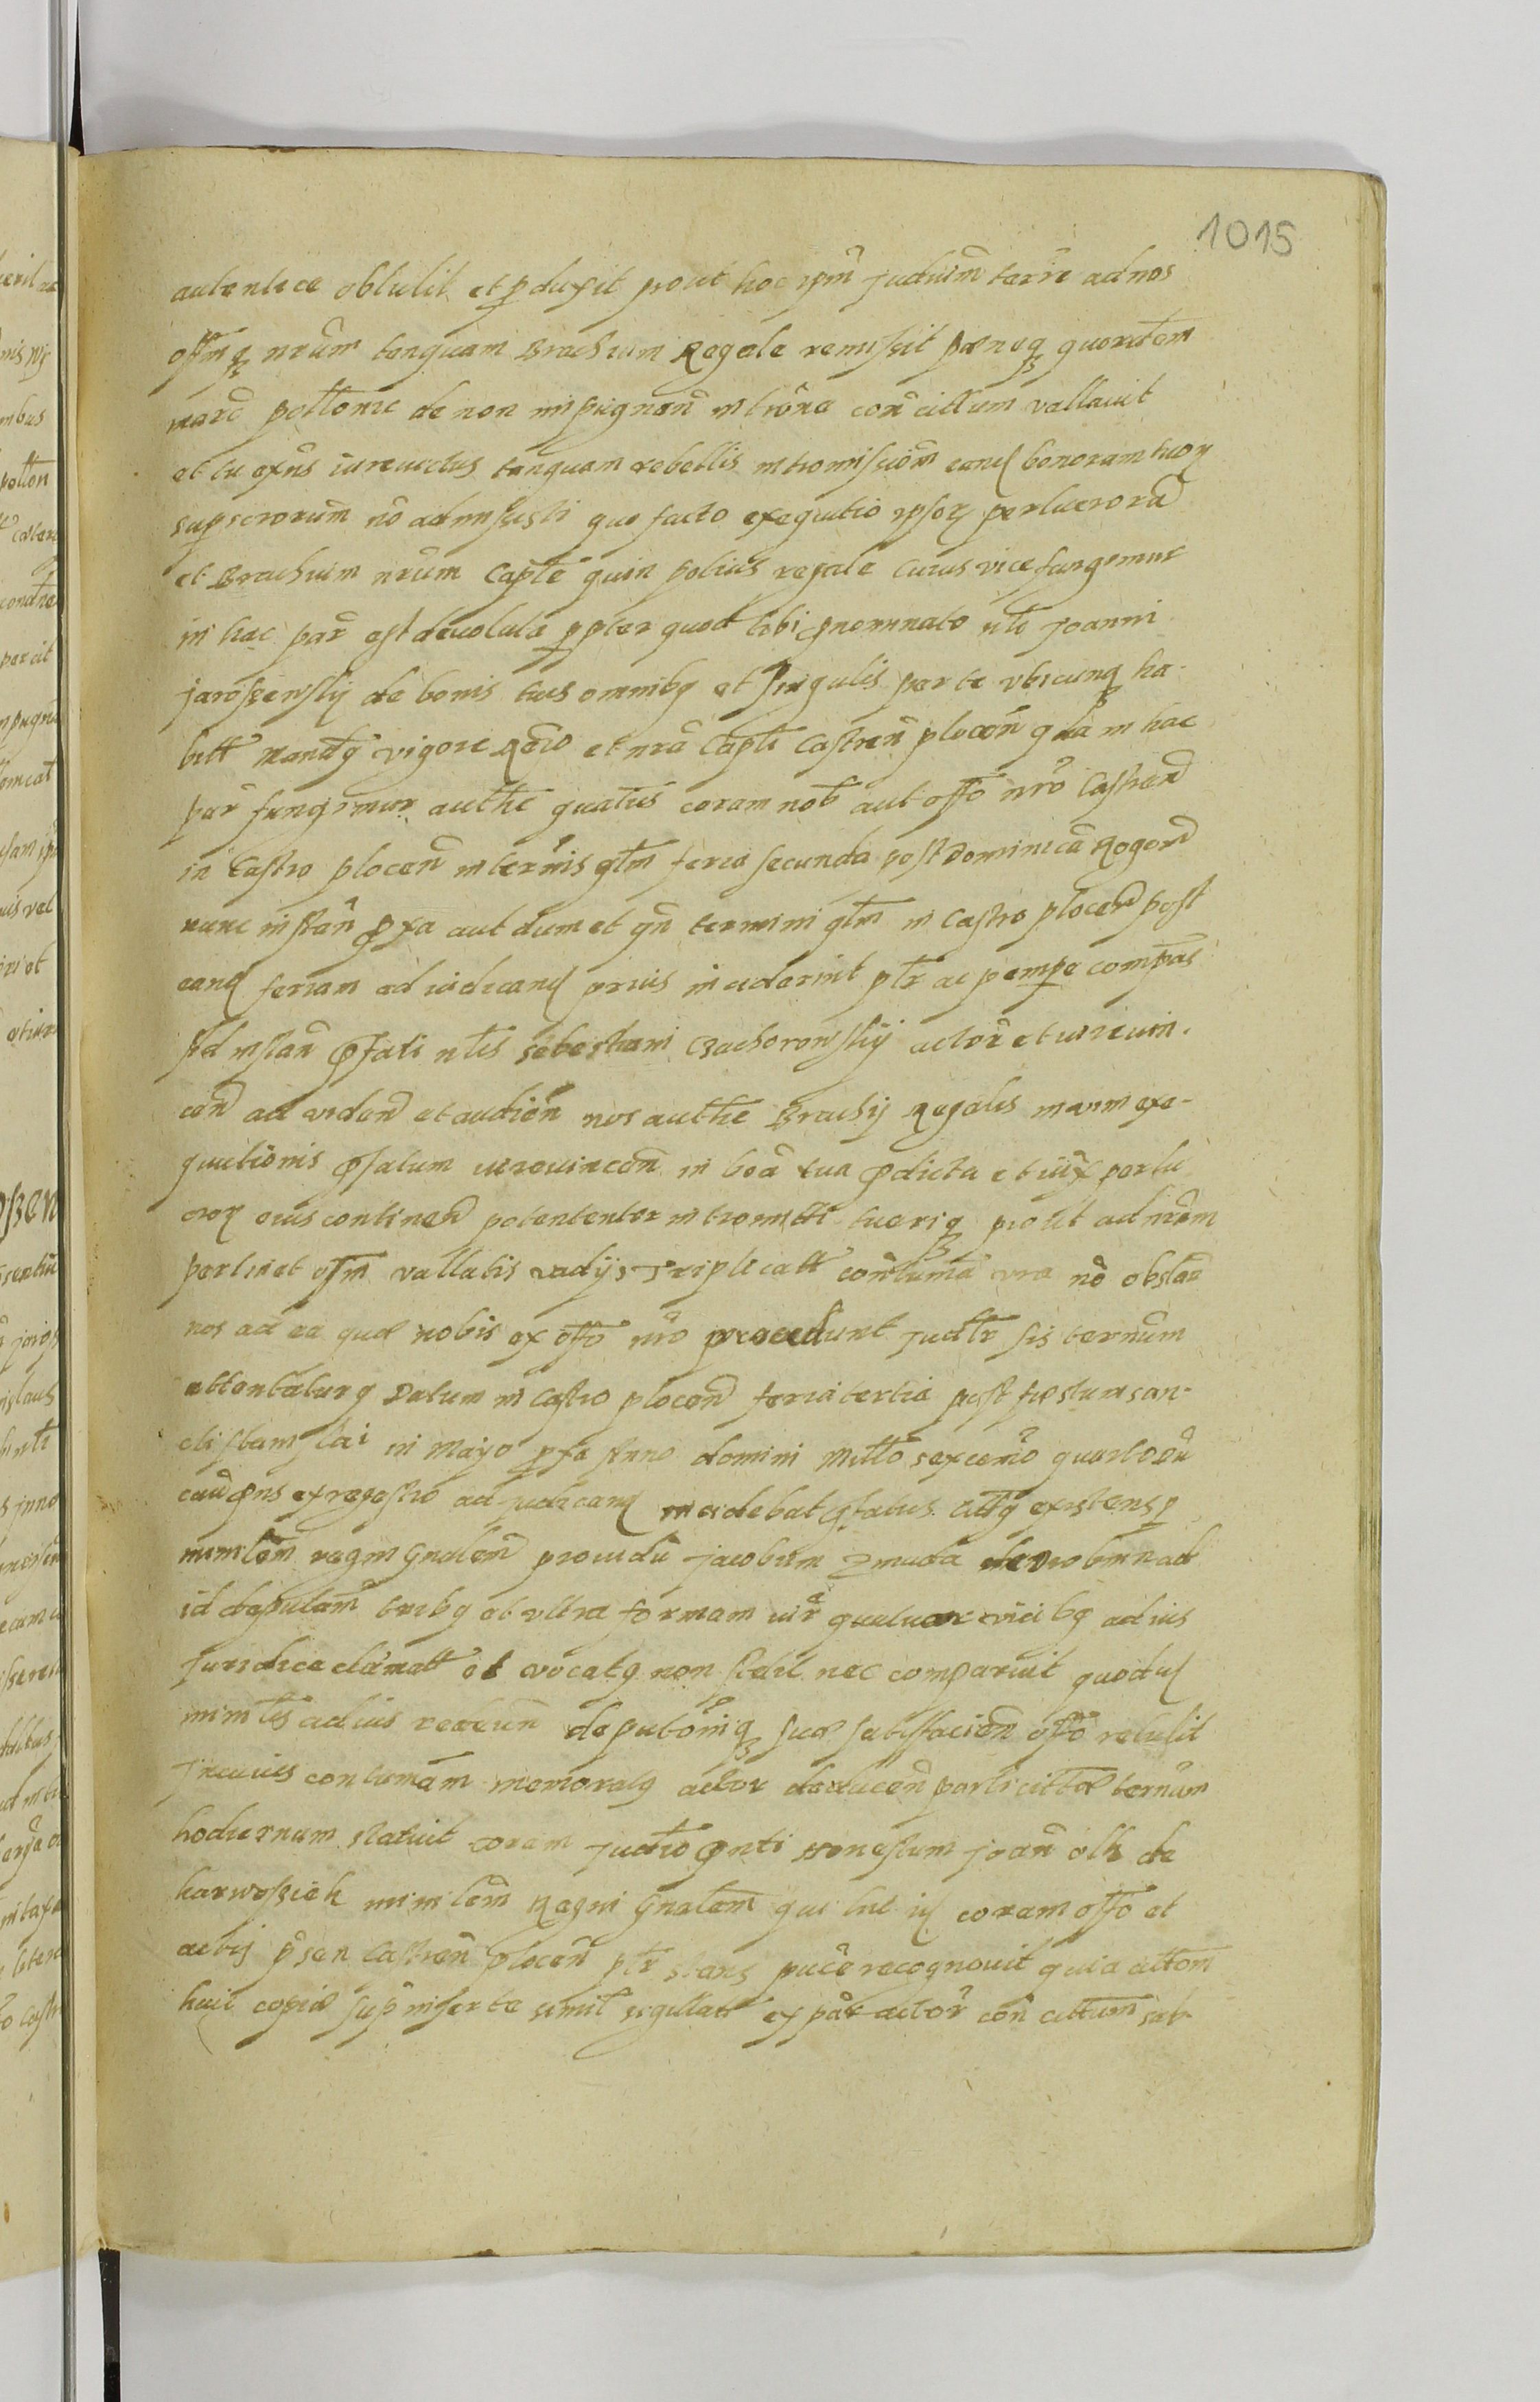 1015
autentice obtulit et ꝑduxit prout hoc ipm̃ judiciũm terrẽ ad nos
offm̃qꝫ nrũm tanquam Brachium Regale remissit pœnaqꝫ quoratem
marc̃ pollonic de non impugnan̄ introñe con̄ citt̃um vallavit
et tu exñs iurevictus tanquam rebellis intromissioñm eand bonorum tuoꝝ
supscrorum nõ admisisti quo facto exequutio ipsoꝝ per lucrorũ
et Brachium nrũm Captẽ quin potius regale cuius vice fungimur
in hac par̃ est devoluta ꝓpter quod tibi pnominato ntĩ Joanni
Jaroszewskij de bonis tuis omnibꝫ et singulis per te ubicunqꝫ ha-
bitt mandꝫ vigore Reg̃io et nrã Captĩ Castren̄ plocen̄ qua in hac
par̃ fungimur authẽ quatẽs coram nob̃ aut offõ nrõ Castren̄
in Castro plocen̄ in termĩs qtm̃ feria secunda post Dominicã Rogon̄
nunc instan̄ ꝓxa aut dum et qñ termini qtm̃ in Castro plocen̄ post
eand feriam ad iudicand prius inciderint ptr̃ ac perempe compeas
Ad instan̄ pfati ntis Sebestiani Czachorowskij actor̃ et iurevin-
cen̄ ad viden̄ et audien̄ nos authẽ Brachij Regalis manu exe-
quutionis pfatum iurevincen̄ in bõa tua pdicta et iux per lu
croꝝ eius continen̄ potententer intromitti tueriqꝫ prout ad nrũm
pertinet offm̃ vallatis vadijs Triplicatt contumã vra nõ obstan̄
nos ad ea quæ nobis ex offõ nrõ procedunt judtr̃ sis ternũm
attentaturꝫ Datum in Castro plocen̄ feria tertia post festum san-
cti Stanislai in Majo ꝓxa Anno domini Millõ sexcenõ quarto Dũ
cau pns ex regestro ad judicand incidebat pfatus Cittꝫ existens ꝑ
mintem̃ regni gnalem̃ providũ Jacobum Zmuda de Drobnin ad
id deputam̃ tribꝫ et ultra formam iur̃ quatuor vicibꝫ ad ius
juridice clamatt et vocatꝫ non stetit nec comparuit quod d
mintis ad ius vocan̄ deputõniqꝫ suæ satisfacien̄ offõ retulit
In cuius contumãm memoratꝫ actor deducen̄ parti cittæ ternũm
hodiernum statuit coram judtio pnti Honestum Joan̄ olk de
Karwosiek mintem̃ Regni gnalem̃ qui hic id coram offõ et
actis p̃sen Castren̄ plocen̄ ptr̃ stans pucẽ recognovit quia cittom
huic copiæ sup inserte simil̃ sigillatt ex par̃ actor̃ con̄ cittum sab-